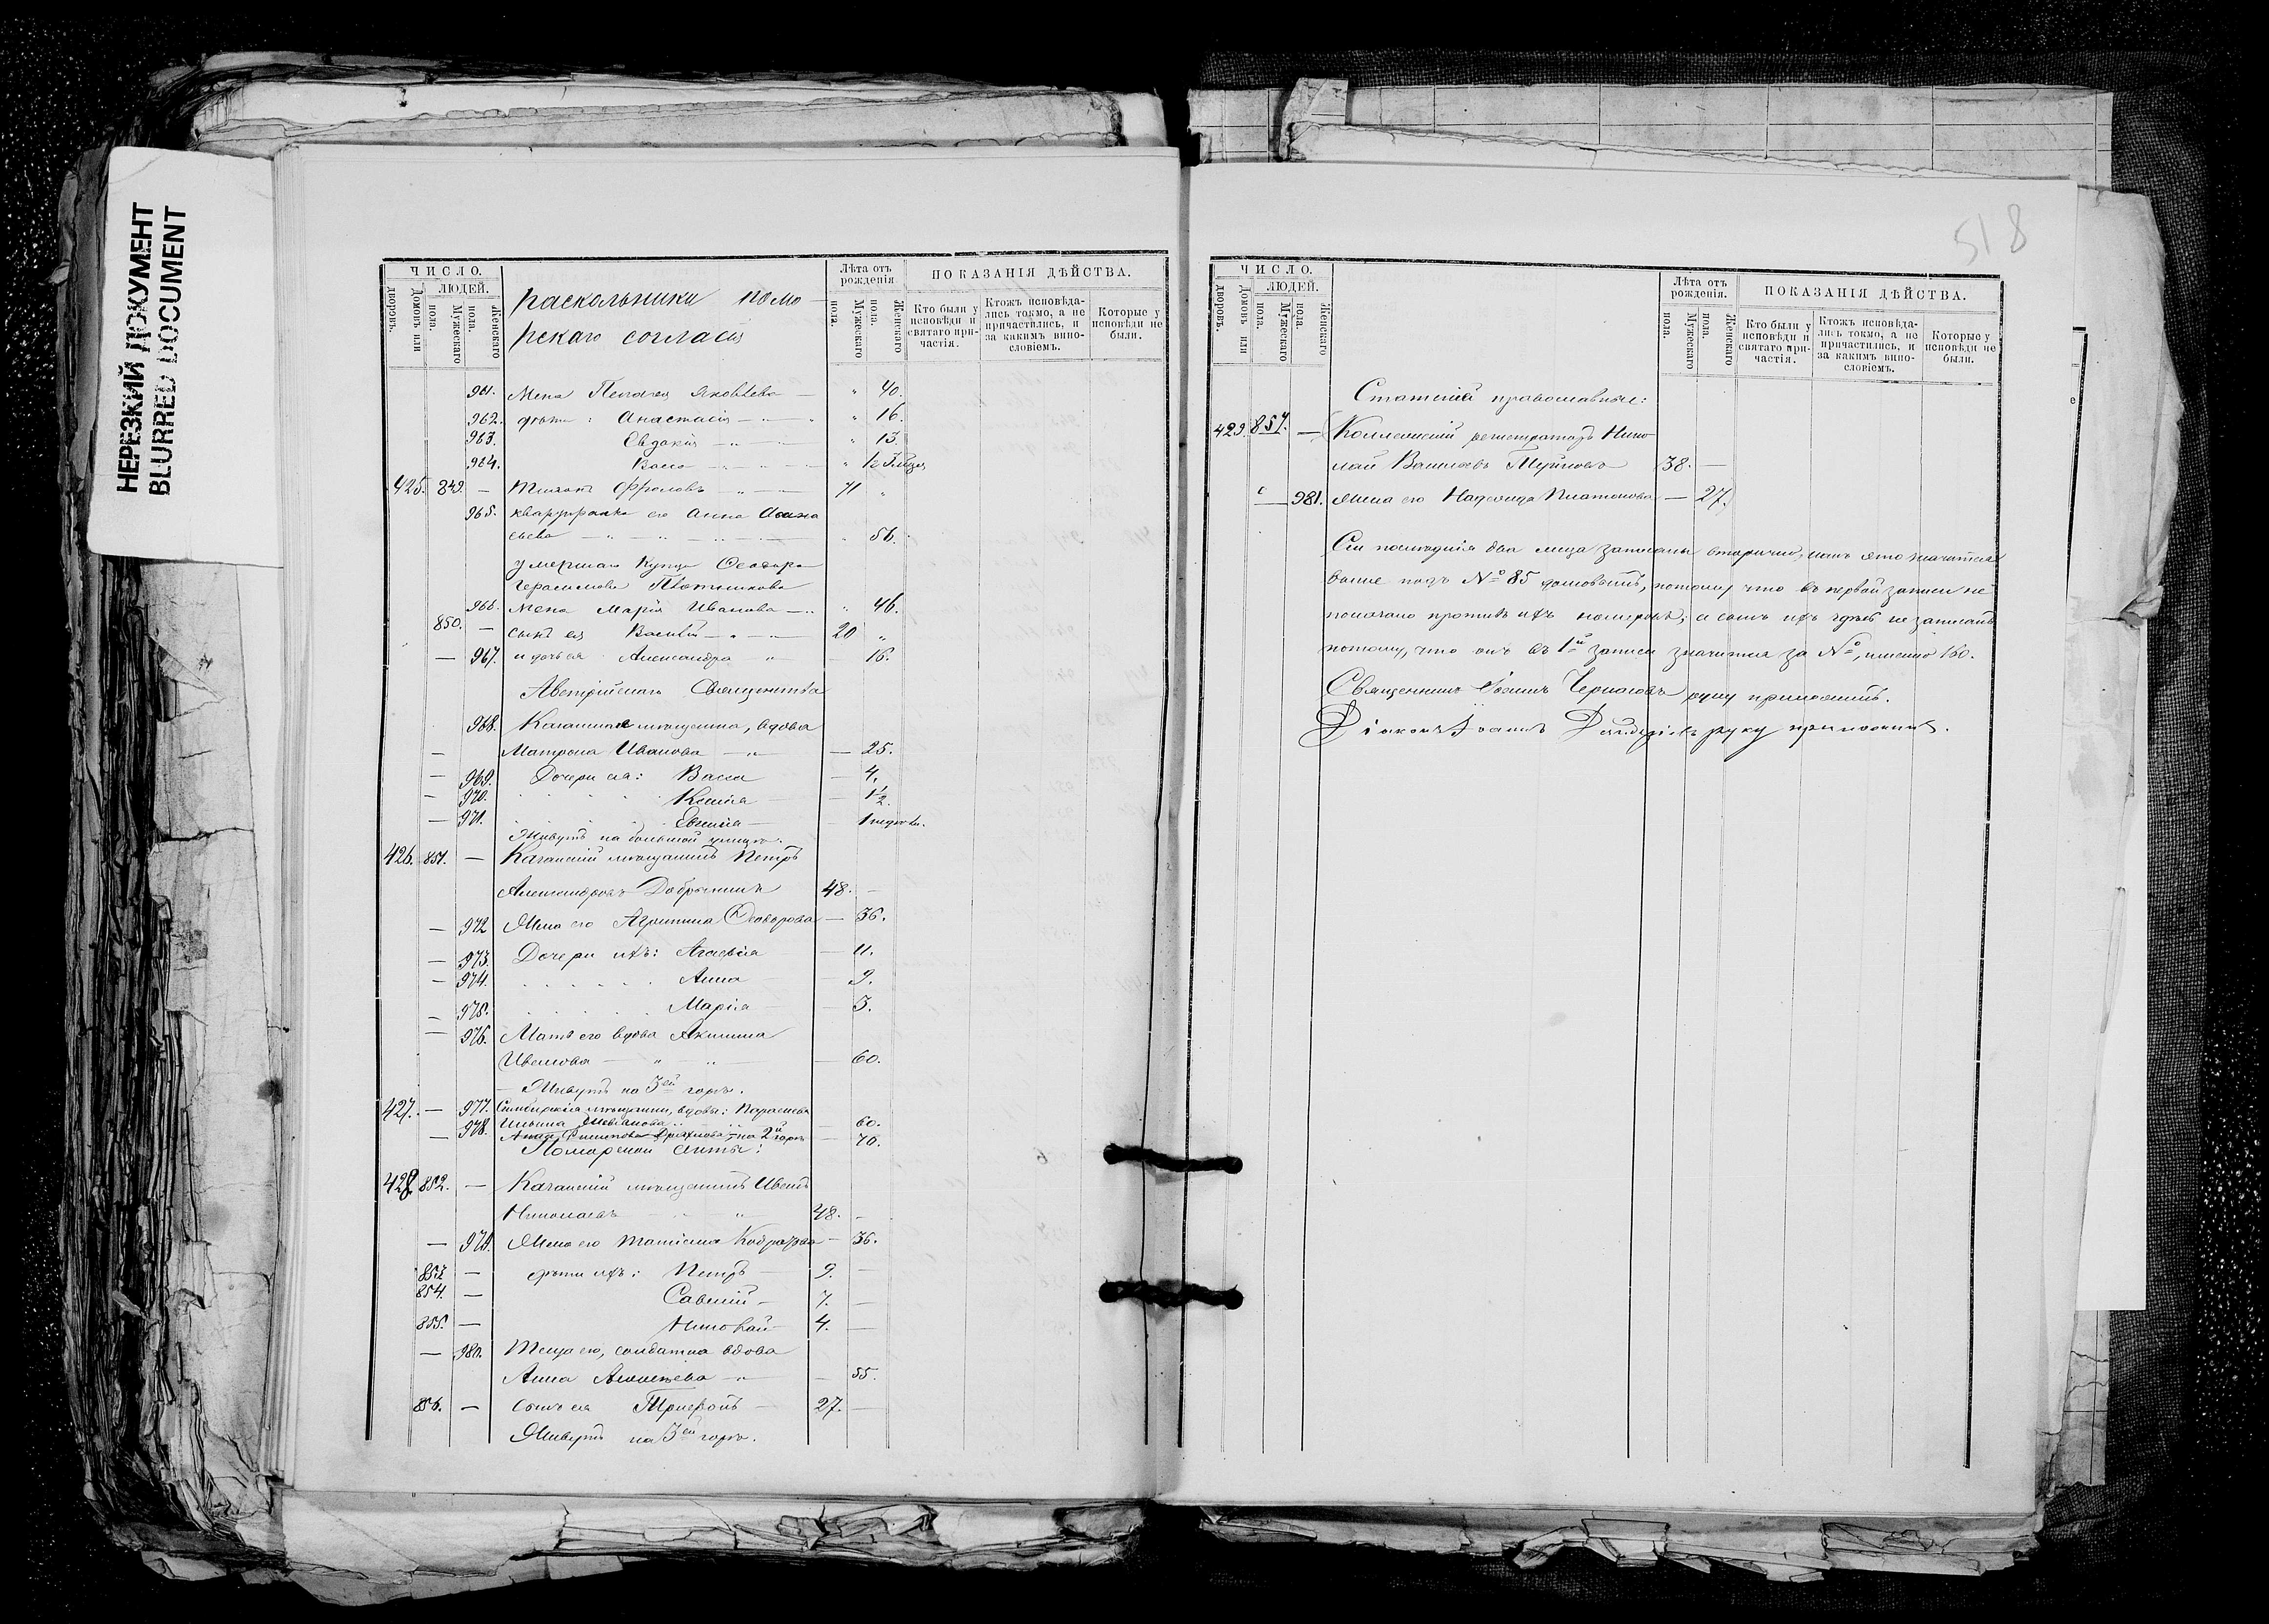 НЕРЕЗКИЙ ДОКУМЕНТ
BLURRED DOCUMENT
ЧИСЛО.
ЛЮДЕЙ.
Дворовъ.
Домовъ или
Мужескаго пола.
Женскаго пола.
раскольники помо-
рскаго согласія
Лѣта отъ рожденія.
Мужескаго пола.
Женскаго пола.
ПОКАЗАНІЯ ДѢЙСТВА.
Кто были у исповѣди и святаго причастія.
Ктожъ исповѣдались токмо, а не причастились, и за какимъ винословіемъ.
Которые у исповѣди не были.
961. Жена Пелагея Яковлева — " 40.
962. дѣти: Анастасія — " 16.
963. Евдокія — " 13.
964. Васса — " 1/2
425. 849. — Тихонъ Фроловъ — 71 "
965. его Анна
56.
умершаго купца Ѳеодора
Герасимова Плотникова
966. жена Марія Иванова — " 46.
850. — сынъ ея Василій — 20 "
— 967. и дочь ея Александра — 16.
Австрійскаго Священства
968. мѣщанка, вдова
— Матрона Иванова — — 25.
— 969. Дочери ея: Васса — 4.
— 970. Ксенія — 1 1/2.
— 971. — 1
Живутъ на большой улицѣ.
426. 851. — мѣщанинъ Петръ
Александровъ Добрынинъ 48. —
— 972 Жена его Агрипина Ѳеодорова — 36.
— 973. Дочери ихъ: Агафія — 11.
— 974. Анна — 9.
— 975. Марія — 3.
— 976. Мать его вдова Акилина
Иванова — 60.
— Живутъ на 3ей горѣ.
427. — 977. Симбирскія мѣщанки, вдовы: Параскева
Ильина — 60.
— 978. Филипова на 2й горѣ — 70.
Поморской секты:
428. 852. — мѣщанинъ Иванъ
Николаевъ 48. —
— 979. Жена его Татіана — 36.
853. — дѣти ихъ: Петръ — 9. —
854. — Савелій — 7. —
855. — Николай 4. —
— 980. Теща его, солдатка вдова
Анна Алексѣева — 55.
856. — Сынъ ея Трифонъ — 27. —
Живутъ на 3ей горѣ.
518
ЧИСЛО.
ЛЮДЕЙ.
Дворовъ.
Домовъ или
Мужескаго пола.
Женскаго пола.
Лѣта отъ рожденія.
Мужескаго пола.
Женскаго пола.
ПОКАЗАНІЯ ДѢЙСТВА.
Кто были у исповѣди и святаго причастія.
Ктожъ исповѣдались токмо, а не причастились, и за какимъ винословіемъ.
Которые у исповѣди не были.
православные:
429. 857. — Коллежскій регистраторъ Нико-
лай 38. —
— 981. Жена его Надежда Платонова — 27.
Сіи послѣднія два лица записаны вторично, какъ это значится
выше подъ № 85 потому что въ первой записи не
показано противъ ихъ номеровъ; а сынъ ихъ здѣсь не записанъ
потому, что онъ въ 1й записи значится за №, именно 160.
Священникъ Іоаннъ руку приложилъ.
Діаконъ Іоаннъ руку приложилъ.